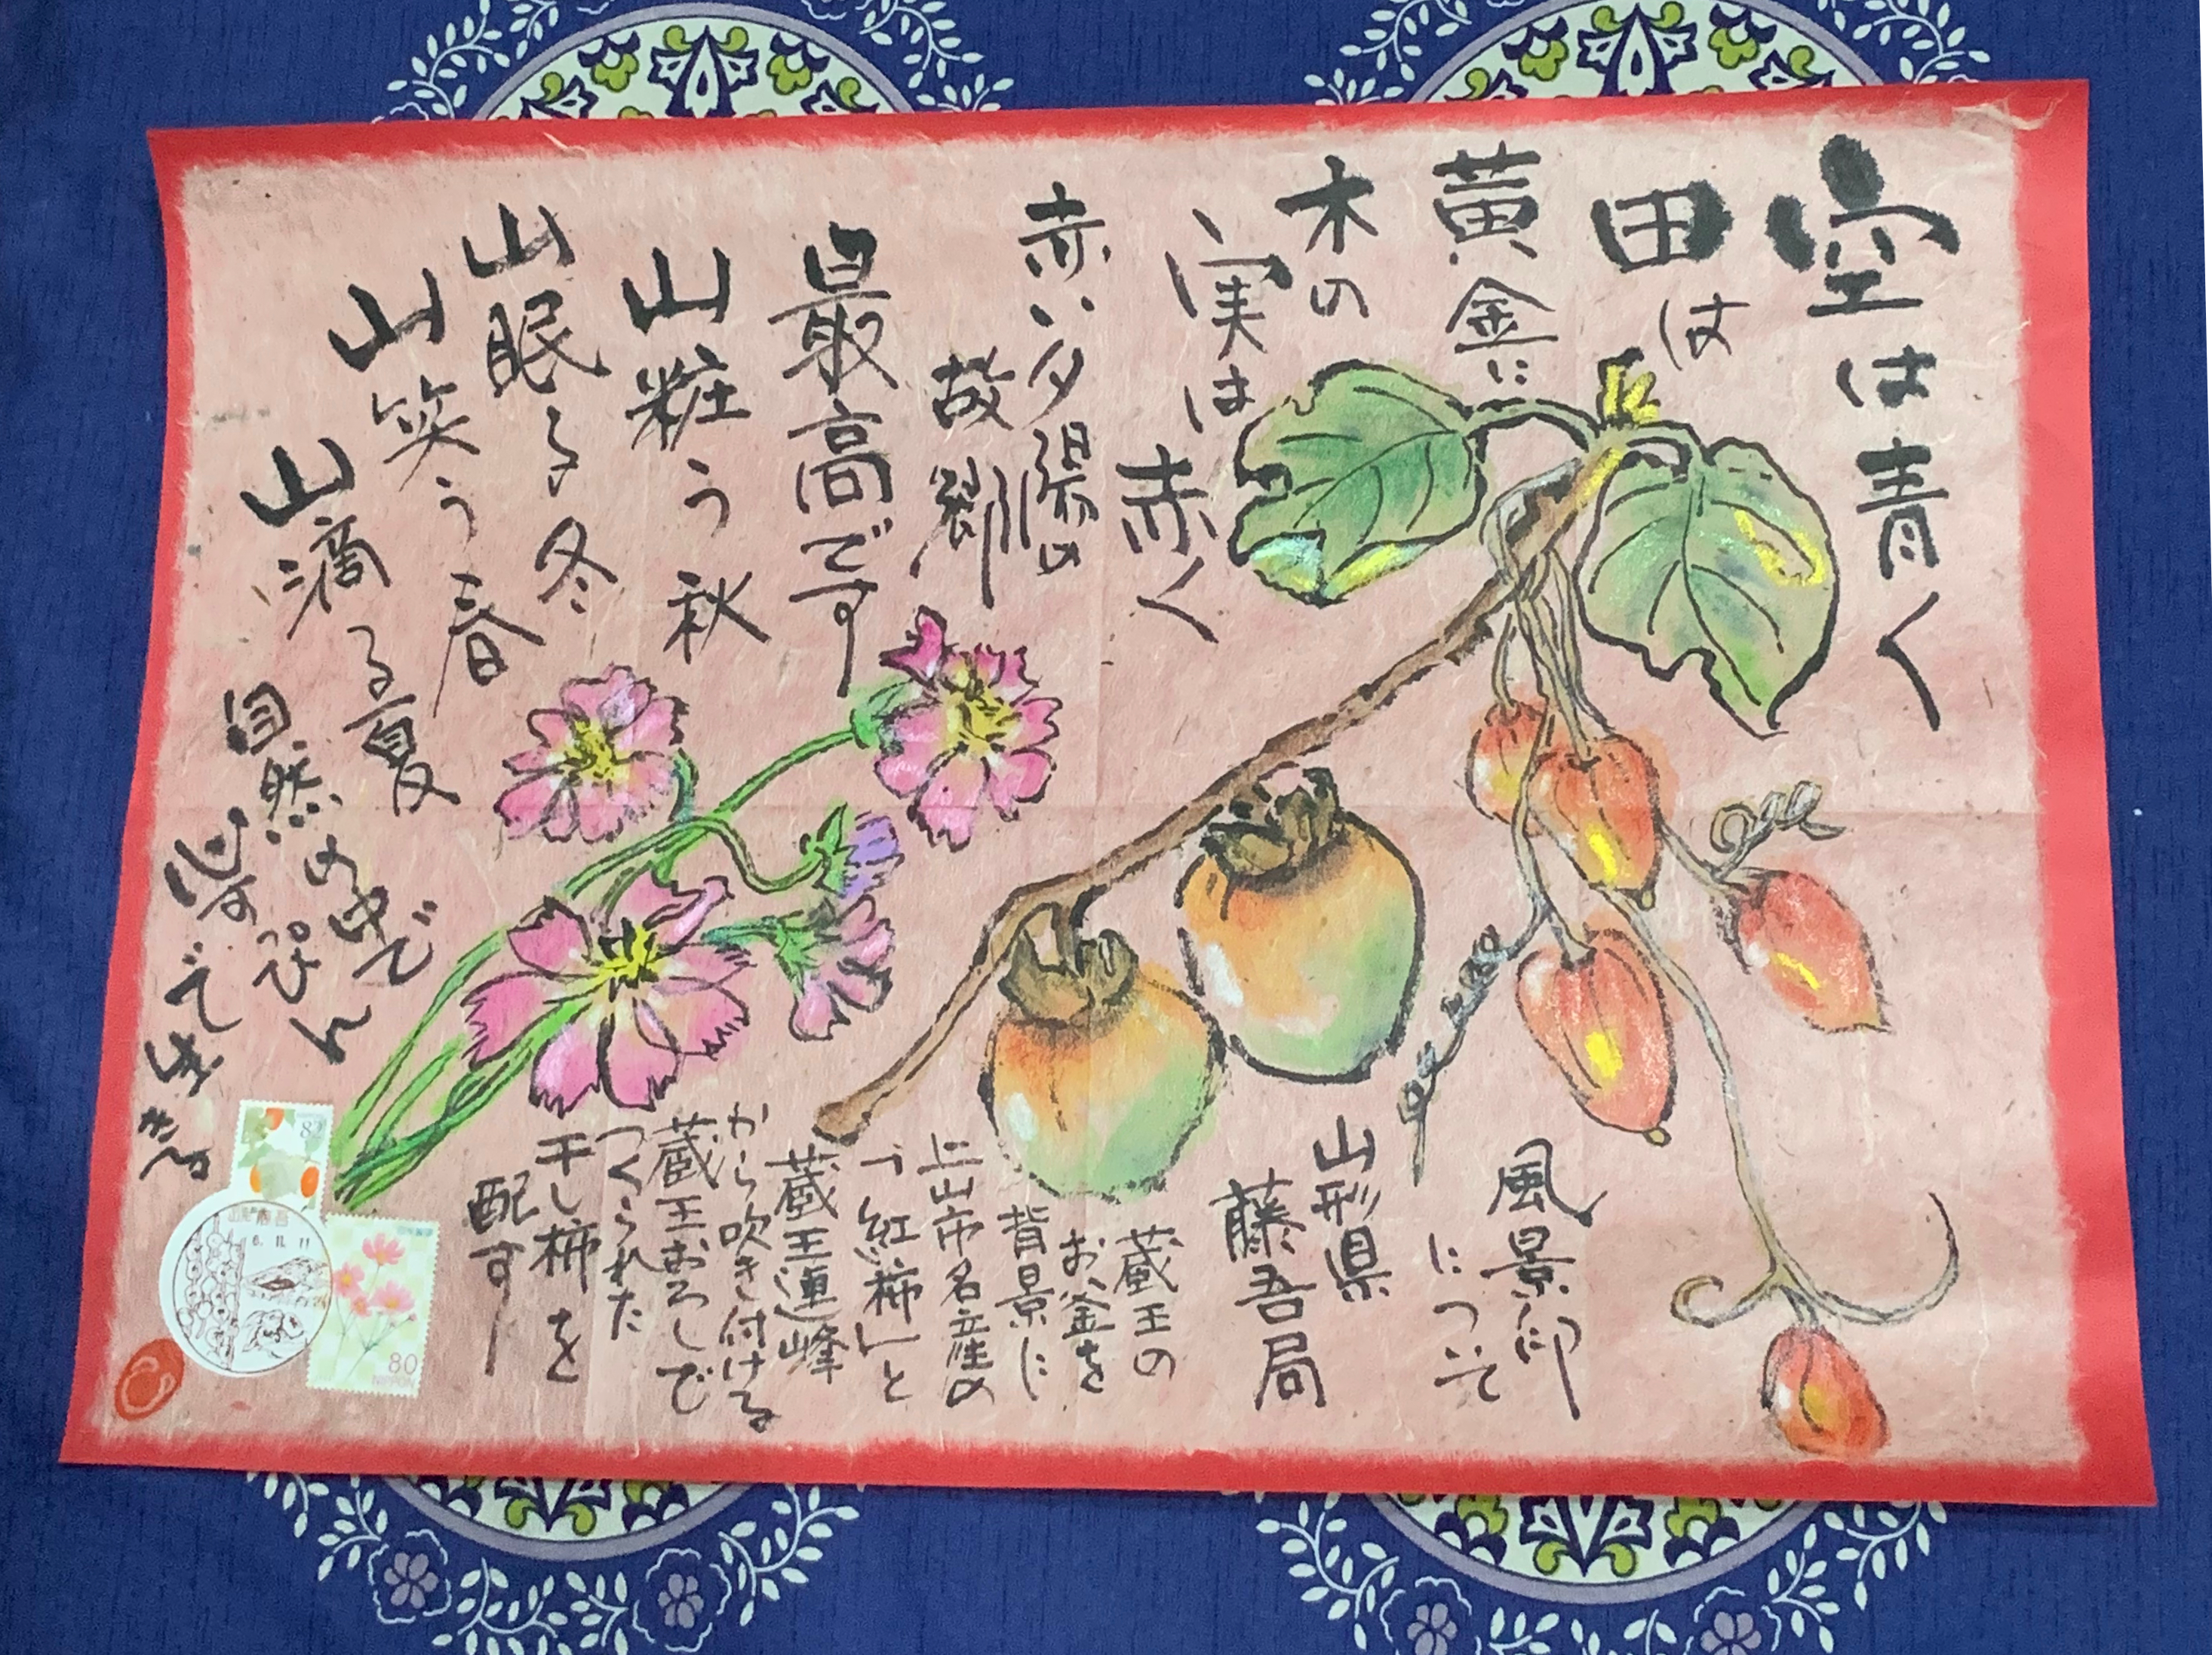 空は青く
田は
黄金に
木の
実は
赤く
赤い夕陽の
故郷
最高です
山粧う秋
山眠る冬
山笑う春
山滴る夏
自然の中で
心
で生きる
風景印
について
山形県
藤吾局
蔵王の
お釜を
背景に
上山市名産の
「紅柿」と
蔵王連峰
から吹き付ける
蔵王おろしで
つくられた
干し柿を
配す
82
6.11.11
80
NIPPON